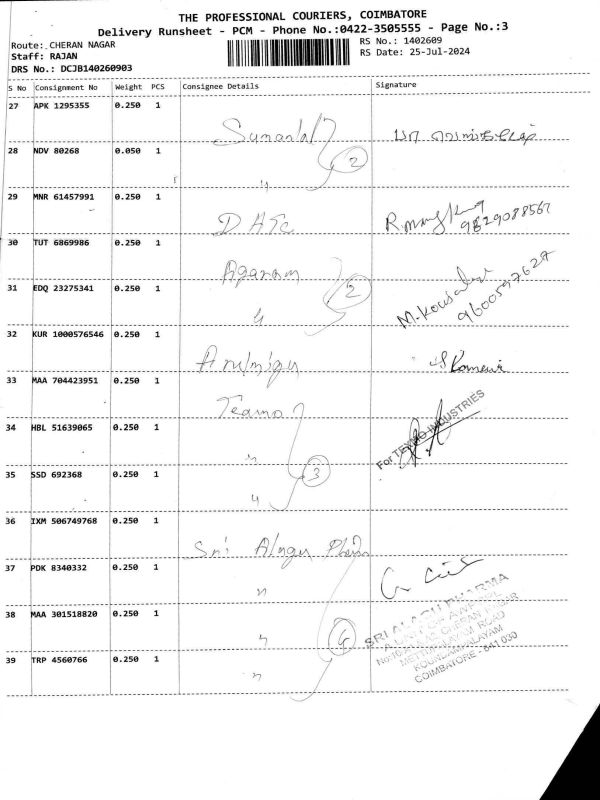 THE PROFESSIONAL COURIERS, COIMBATORE
Delivery Runsheet - PCM - Phone No.:0422-3505555 - Page No.:3
Route: CHERAN NAGAR
RS No.: 1402609
Staff: RAJAN
RS Date: 25-Jul-2024
DRS No.: DCJB140260903
S No Consignment No Weight PCS Consignee Details Signature
27 APK 1295355 0.250 1
28 NDV 80268 0.050 1 " 2
29 MNR 61457991 0.250 1 9829088567
30 TUT 6869986 0.250 1 Agaram
31 EDQ 23275341 0.250 1 " 2 M.Kousalya
32 KUR 1000576546 0.250 1 Arulmigu
33 MAA 704423951 0.250 1
34 HBL 51639065 0.250 1 " For TEXMO INDUSTRIES
35 SSD 692368 0.250 1 " 3
36 IXM 506749768 0.250 1 Sri Alagu Pharm
37 PDK 8340332 0.250 1 "
38 MAA 301518820 0.250 1 "
39 TRP 4560766 0.250 1 "
SRI ALAGU PHARMA
CHERAN NAGAR
METTUPALAYAM ROAD
KOUNDAMPALAYAM
COIMBATORE - 641 030